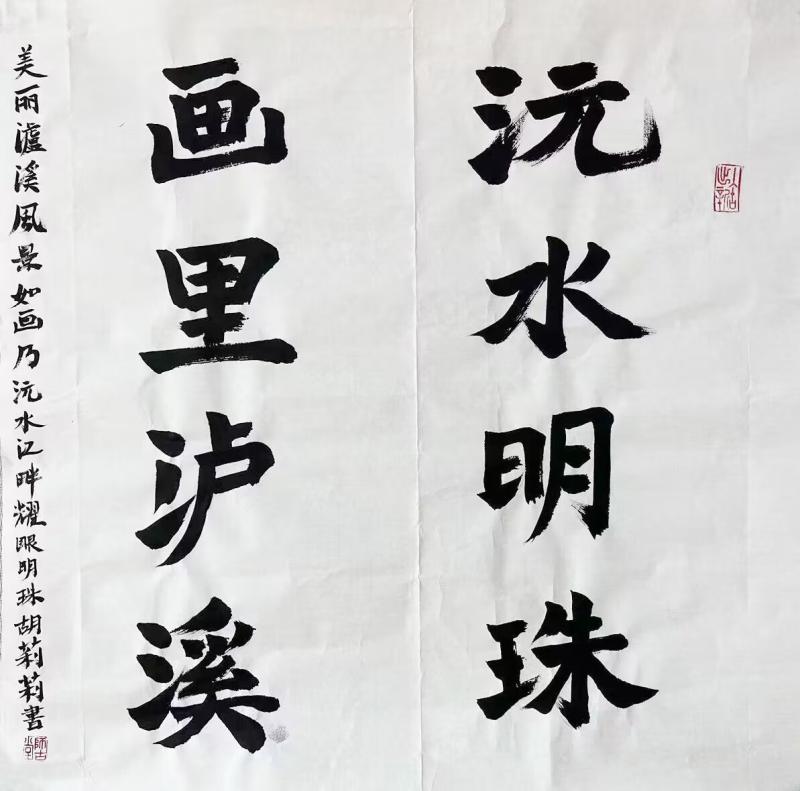 沅水明珠
画里泸溪
美丽瀘溪風景如画乃沅水江畔耀眼明珠胡莉莉書